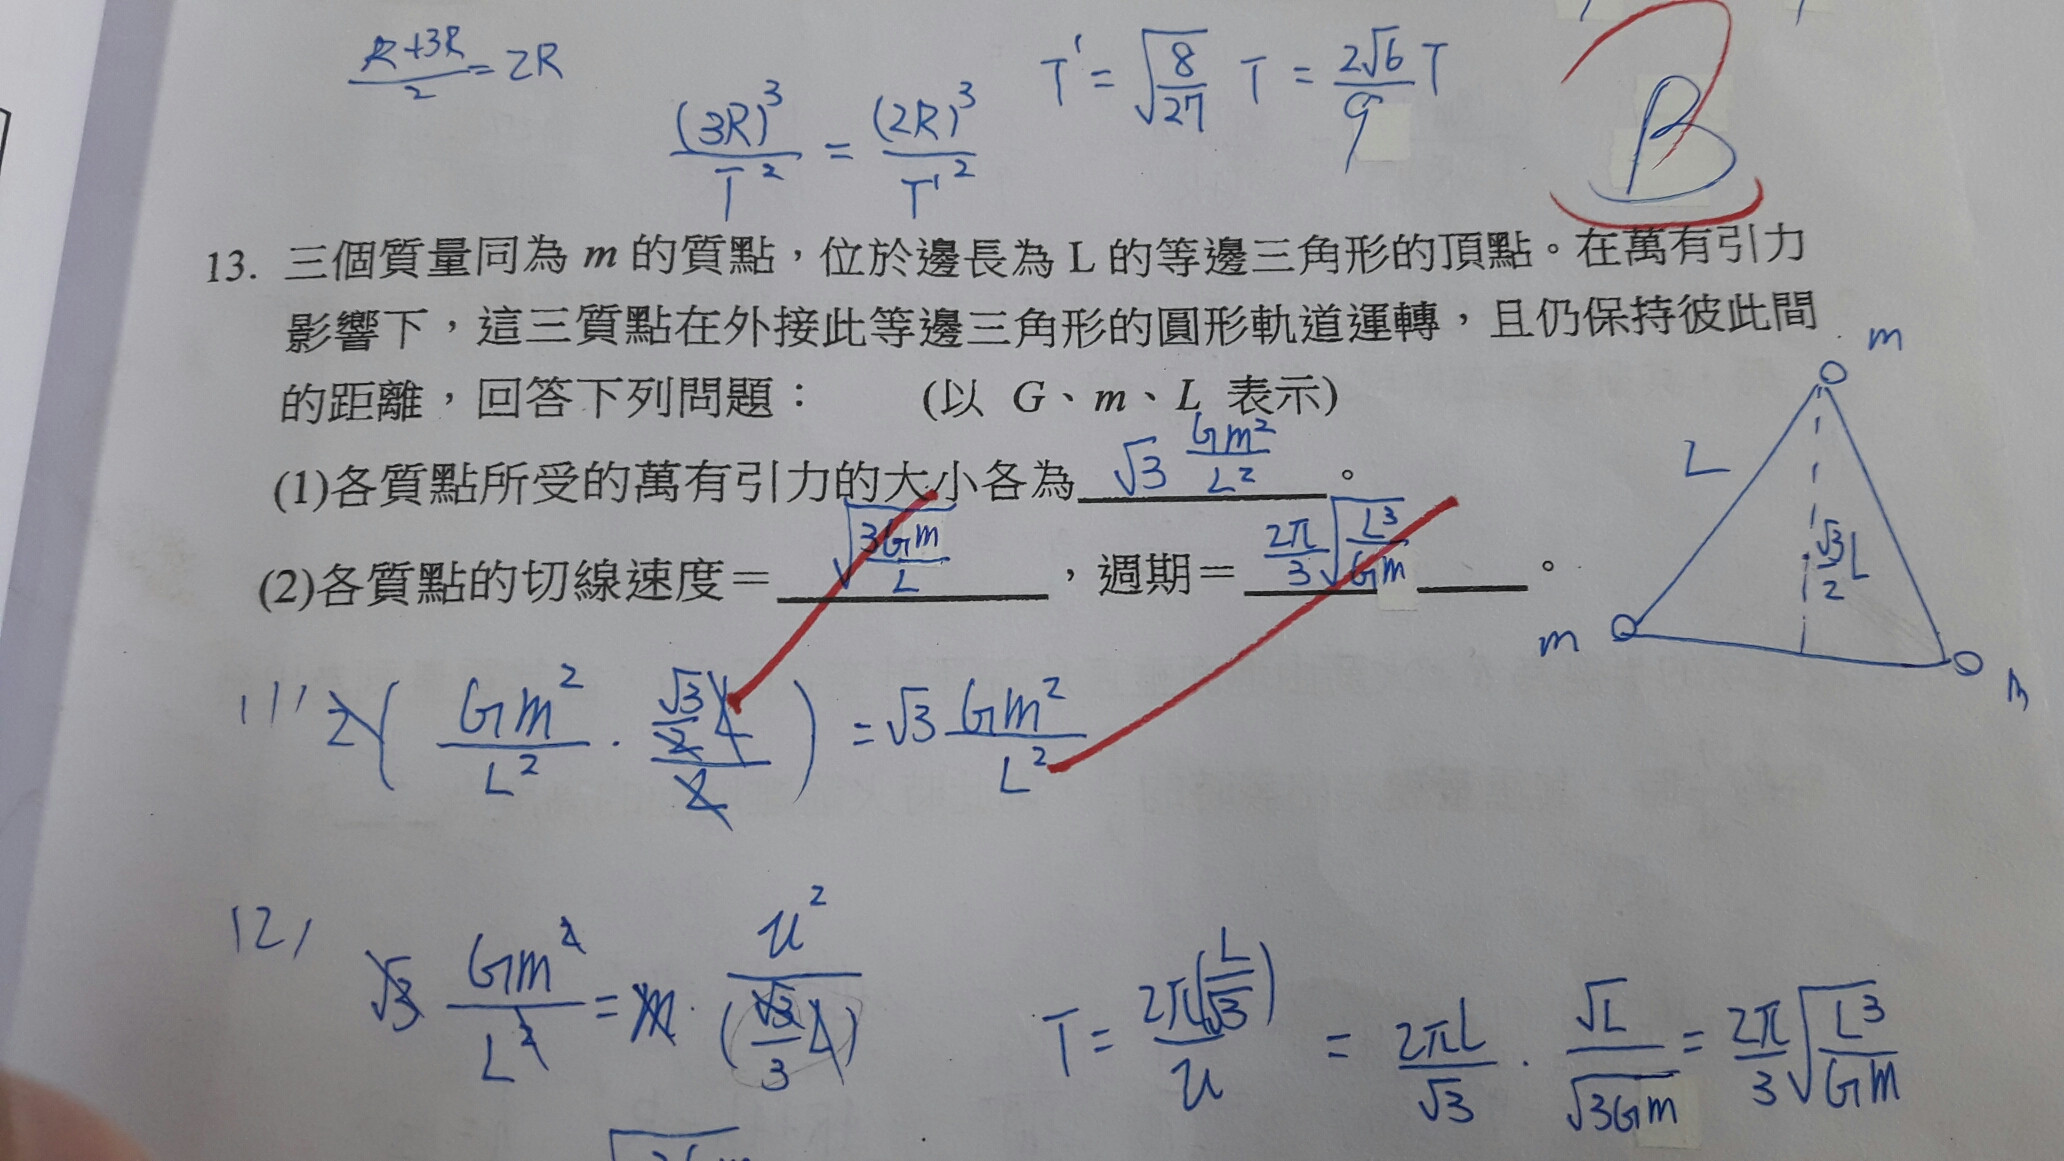 (R+3R)/2 = 2R
(3R)³/T² = (2R)³/T'²
T' = √(8/27) T = 2√6/9 T
B
13. 三個質量同為 m 的質點，位於邊長為 L 的等邊三角形的頂點。在萬有引力
影響下，這三質點在外接此等邊三角形的圓形軌道運轉，且仍保持彼此間
的距離，回答下列問題： (以 G、m、L 表示)
(1)各質點所受的萬有引力的大小各為 √3 Gm²/L² 。
(2)各質點的切線速度＝ √(3Gm/L) ，週期＝ 2π/3 √(L³/Gm) 。
m
L
√3/2 L
m
m
(1) 2( Gm²/L² · (√3/2 L)/L ) = √3 Gm²/L²
(2) √3 Gm²/L² = m · v²/(√3/3 L)
T = 2π(L/√3)/v = 2πL/√3 · √L/√3Gm = 2π/3 √(L³/Gm)